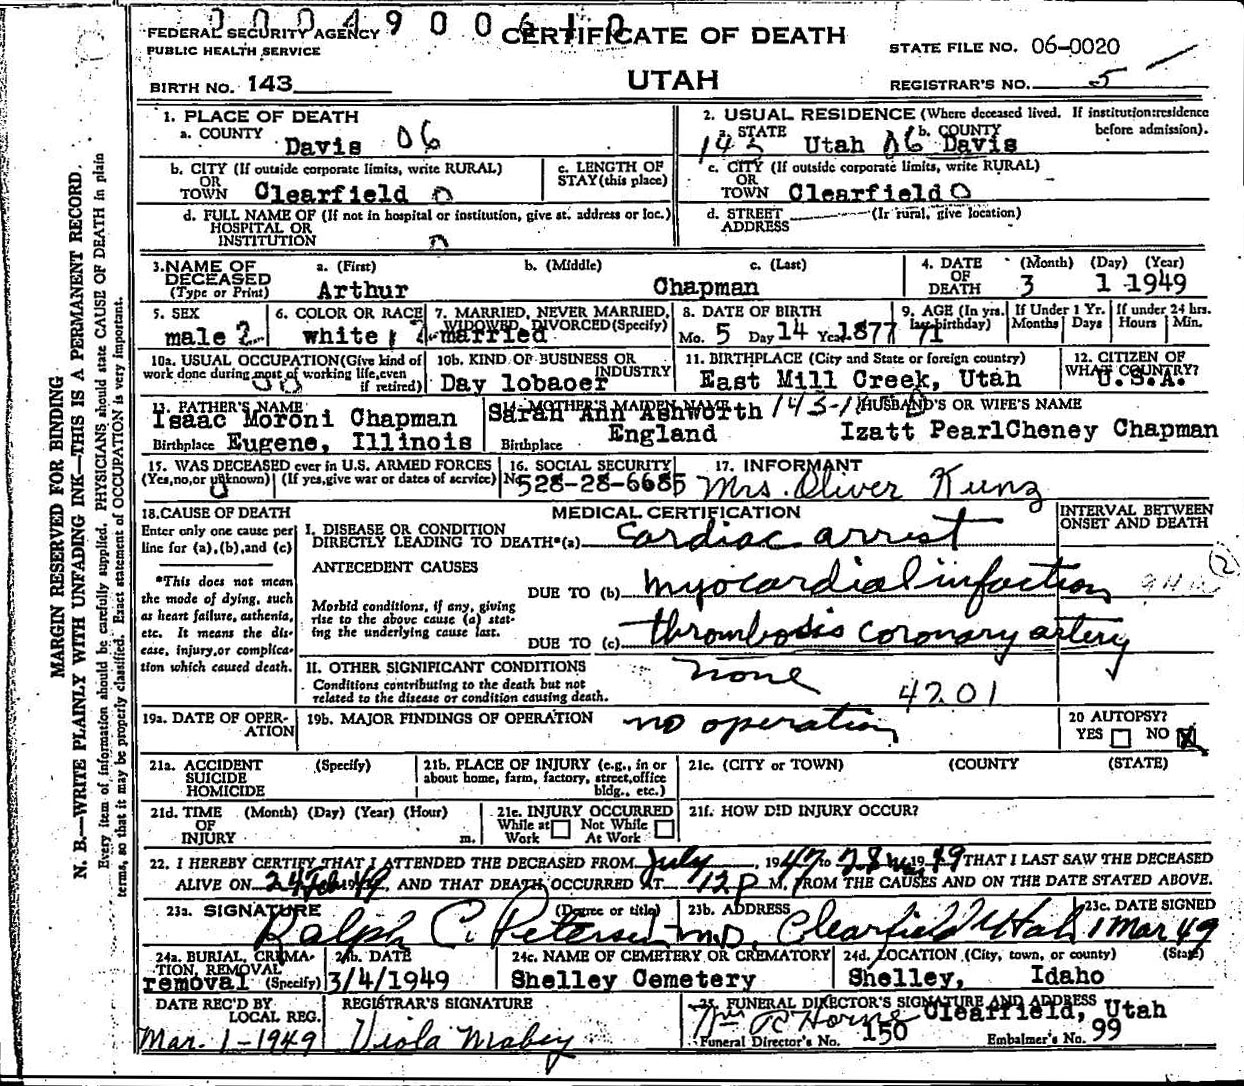 000490061 0
FEDERAL SECURITY AGENCY
PUBLIC HEALTH SERVICE
CERTIFICATE OF DEATH
STATE FILE NO. 06-0020
BIRTH NO. 143
UTAH
REGISTRAR'S NO. 5
1. PLACE OF DEATH
a. COUNTY
Davis 06
2. USUAL RESIDENCE (Where deceased lived. If institution: residence before admission).
a. STATE b. COUNTY
143 Utah 06 Davis
b. CITY (If outside corporate limits, write RURAL)
OR
TOWN Clearfield 0
c. LENGTH OF
STAY (this place)
c. CITY (If outside corporate limits, write RURAL)
OR
TOWN Clearfield 0
d. FULL NAME OF (If not in hospital or institution, give st. address or loc.)
HOSPITAL OR
INSTITUTION 0
d. STREET (If rural, give location)
ADDRESS
3. NAME OF
DECEASED
(Type or Print)
a. (First) b. (Middle) c. (Last)
Arthur Chapman
4. DATE
OF
DEATH
(Month) (Day) (Year)
3 1 1949
5. SEX
male 2
6. COLOR OR RACE
white 1
7. MARRIED, NEVER MARRIED,
WIDOWED, DIVORCED (Specify)
2 married
8. DATE OF BIRTH
Mo. 5 Day 14 Year 1877
9. AGE (In yrs.
last birthday)
71
If Under 1 Yr.
Months Days
If under 24 hrs.
Hours Min.
10a. USUAL OCCUPATION (Give kind of
work done during most of working life, even
if retired)
10b. KIND OF BUSINESS OR
INDUSTRY
Day lobaoer
11. BIRTHPLACE (City and State or foreign country)
East Mill Creek, Utah
12. CITIZEN OF
WHAT COUNTRY?
U.S.A.
13. FATHER'S NAME
Isaac Moroni Chapman
Birthplace Eugene, Illinois
14. MOTHER'S MAIDEN NAME
Sarah Ann Ashworth
Birthplace England
HUSBAND'S OR WIFE'S NAME
Izatt PearlCheney Chapman
15. WAS DECEASED ever in U.S. ARMED FORCES
(Yes, no, or unknown) (If yes, give war or dates of service)
16. SOCIAL SECURITY
No. 528-28-6685
17. INFORMANT
Mrs. Oliver Kunz
18. CAUSE OF DEATH
Enter only one cause per
line for (a), (b), and (c)
*This does not mean
the mode of dying, such
as heart failure, asthenia,
etc. It means the dis-
ease, injury, or complica-
tion which caused death.
MEDICAL CERTIFICATION
I. DISEASE OR CONDITION
DIRECTLY LEADING TO DEATH*(a) cardiac arrest
INTERVAL BETWEEN
ONSET AND DEATH
ANTECEDENT CAUSES
DUE TO (b) myocardial infaction
2
Morbid conditions, if any, giving
rise to the above cause (a) stat-
ing the underlying cause last.
DUE TO (c) thrombosis coronary artery
II. OTHER SIGNIFICANT CONDITIONS
Conditions contributing to the death but not
related to the disease or condition causing death.
none
4201
19a. DATE OF OPER-
ATION
19b. MAJOR FINDINGS OF OPERATION no operation
20 AUTOPSY?
YES NO X
21a. ACCIDENT (Specify)
SUICIDE
HOMICIDE
21b. PLACE OF INJURY (e.g., in or
about home, farm, factory, street, office
bldg., etc.)
21c. (CITY or TOWN) (COUNTY (STATE)
21d. TIME (Month) (Day) (Year) (Hour)
OF
INJURY m.
21e. INJURY OCCURRED
While at Not While
Work At Work
21f. HOW DID INJURY OCCUR?
22. I HEREBY CERTIFY THAT I ATTENDED THE DECEASED FROM July, 1947 to 28 19 49 THAT I LAST SAW THE DECEASED
ALIVE ON 24 Feb 1949, AND THAT DEATH OCCURRED AT 12 P M. FROM THE CAUSES AND ON THE DATE STATED ABOVE.
23a. SIGNATURE (Degree or title)
Ralph C. Petersen M.D.
23b. ADDRESS
Clearfield Utah
23c. DATE SIGNED
1 Mar 49
24a. BURIAL, CREMA-
TION, REMOVAL
removal (Specify)
24b. DATE
3/4/1949
24c. NAME OF CEMETERY OR CREMATORY
Shelley Cemetery
24d. LOCATION (City, town, or county) (State)
Shelley, Idaho
DATE REC'D BY
LOCAL REG.
Mar. 1-1949
REGISTRAR'S SIGNATURE
Viola Mabey
25. FUNERAL DIRECTOR'S SIGNATURE AND ADDRESS
Clearfield, Utah
Horne
Funeral Director's No. 150 Embalmer's No. 99
MARGIN RESERVED FOR BINDING
N. B.—WRITE PLAINLY WITH UNFADING INK—THIS IS A PERMANENT RECORD.
Every item of information should be carefully supplied. PHYSICIANS should state CAUSE OF DEATH in plain
terms, so that it may be properly classified. Exact statement of OCCUPATION is very important.